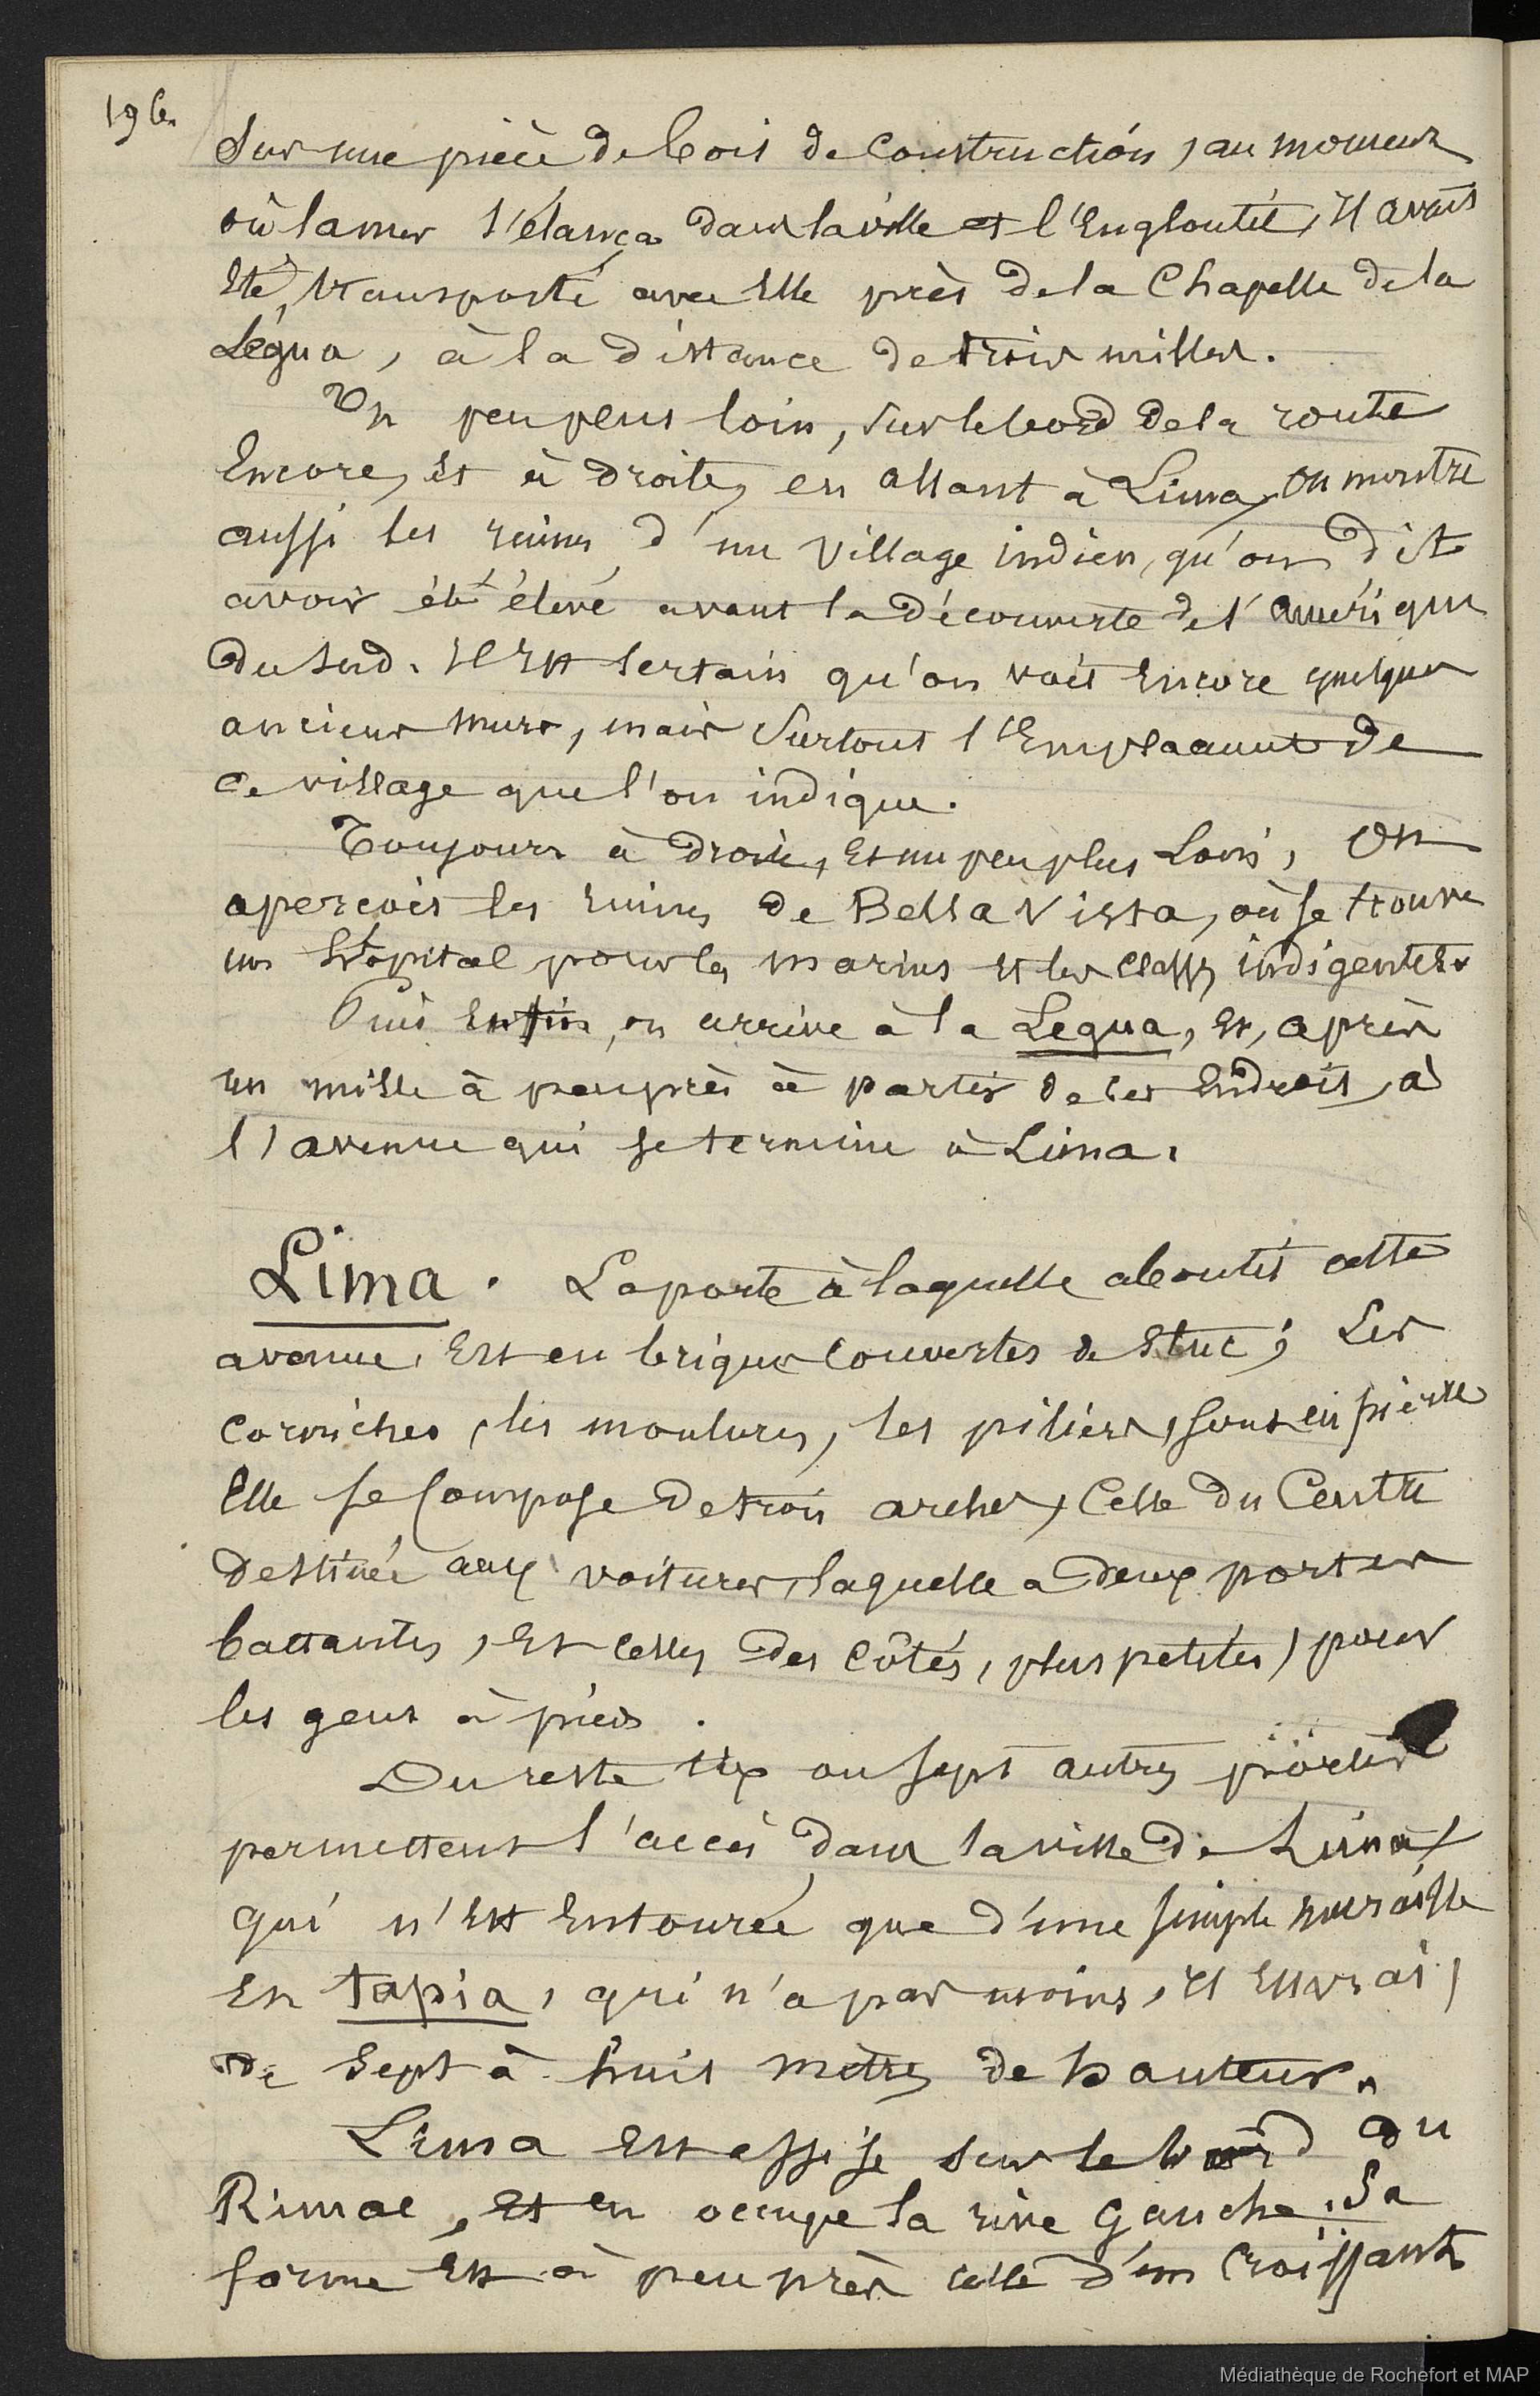 196.
Sur une pièce de bois de construction, au moment
où la mer s'élança dans la ville et l'engloutit, il avait
été, transporté avec elle près de la Chapelle de la
Légua, à la distance de trois milles.
Un peu plus loin, sur le bord de la route
encore, et à droite, en allant à Lima, on montre
aussi les ruines d'un village indien, qu'on dit
avoir été élevé avant la découverte de l'amérique
du sud. Il est certain qu'on voit encore quelques
anciens murs, mais surtout l'emplacement de
ce village que l'on indique.
Toujours à droite, et un peu plus loin, on
aperçoit les ruines de Bella Vista, où se trouve
un hôpital pour les marins et les classes indigentes.
Puis enfin, on arrive à la Legua, et, après
un mille à peu près à partir de cet endroit, à
l'avenue qui se termine à Lima.
Lima. La porte à laquelle aboutit cette
avenue, est en briques couvertes de stuc; les
corniches, les moulures, les piliers, sont en pierre
Elle se compose de trois arches, celle du Centre
destinée aux voitures, laquelle a deux portes
battantes, et celles des côtés, plus petites, pour
les gens à pieds.
Du reste six ou sept autres portes
permettent l'accès dans la ville de Lima,
qui n'est entourée que d'une simple muraille
en tapia, qui n'a pas moins, il est vrai,
de sept à huit mètres de hauteur.
Lima est assise sur le bord du
Rimac, et en occupe la rive gauche. Sa
forme est à peu près celle d'un croissant
Médiathèque de Rochefort et MAP